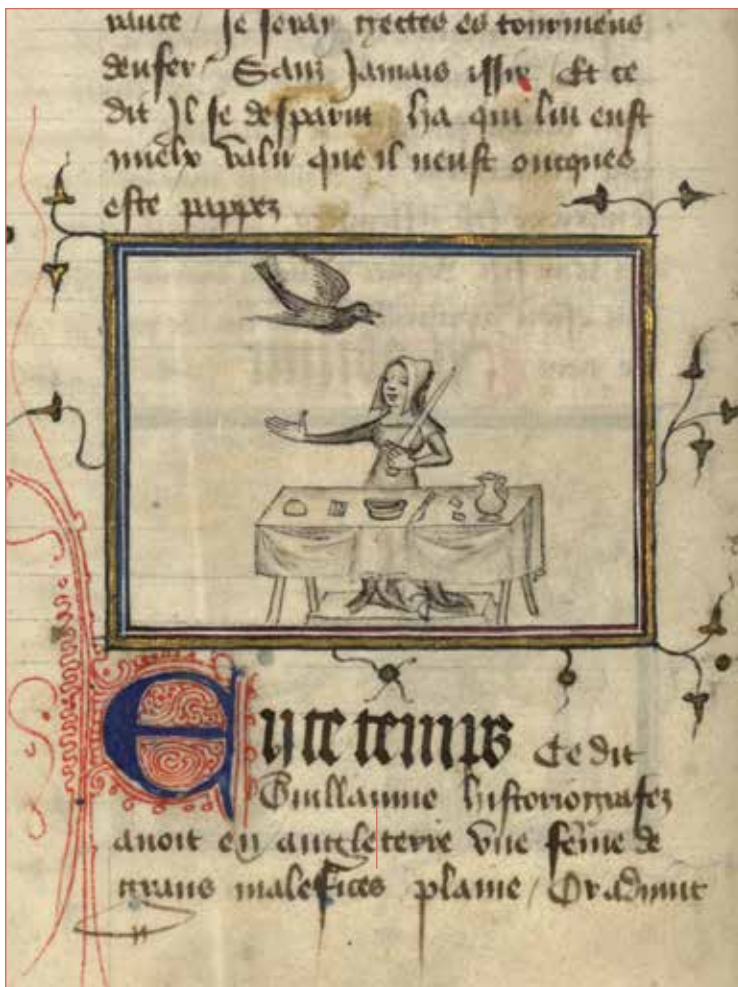 rance / Je seray gectes es tourmens
denfer / Sans Jamais issir Et ce
dit Il se desparut ha qui lui eust
mielx valu que il neust oncques
este pippez
En ce temps Ce dit
Guillaume historiografez
auoit en angleterre vne feme de
grans malefices plaine / Or aduint